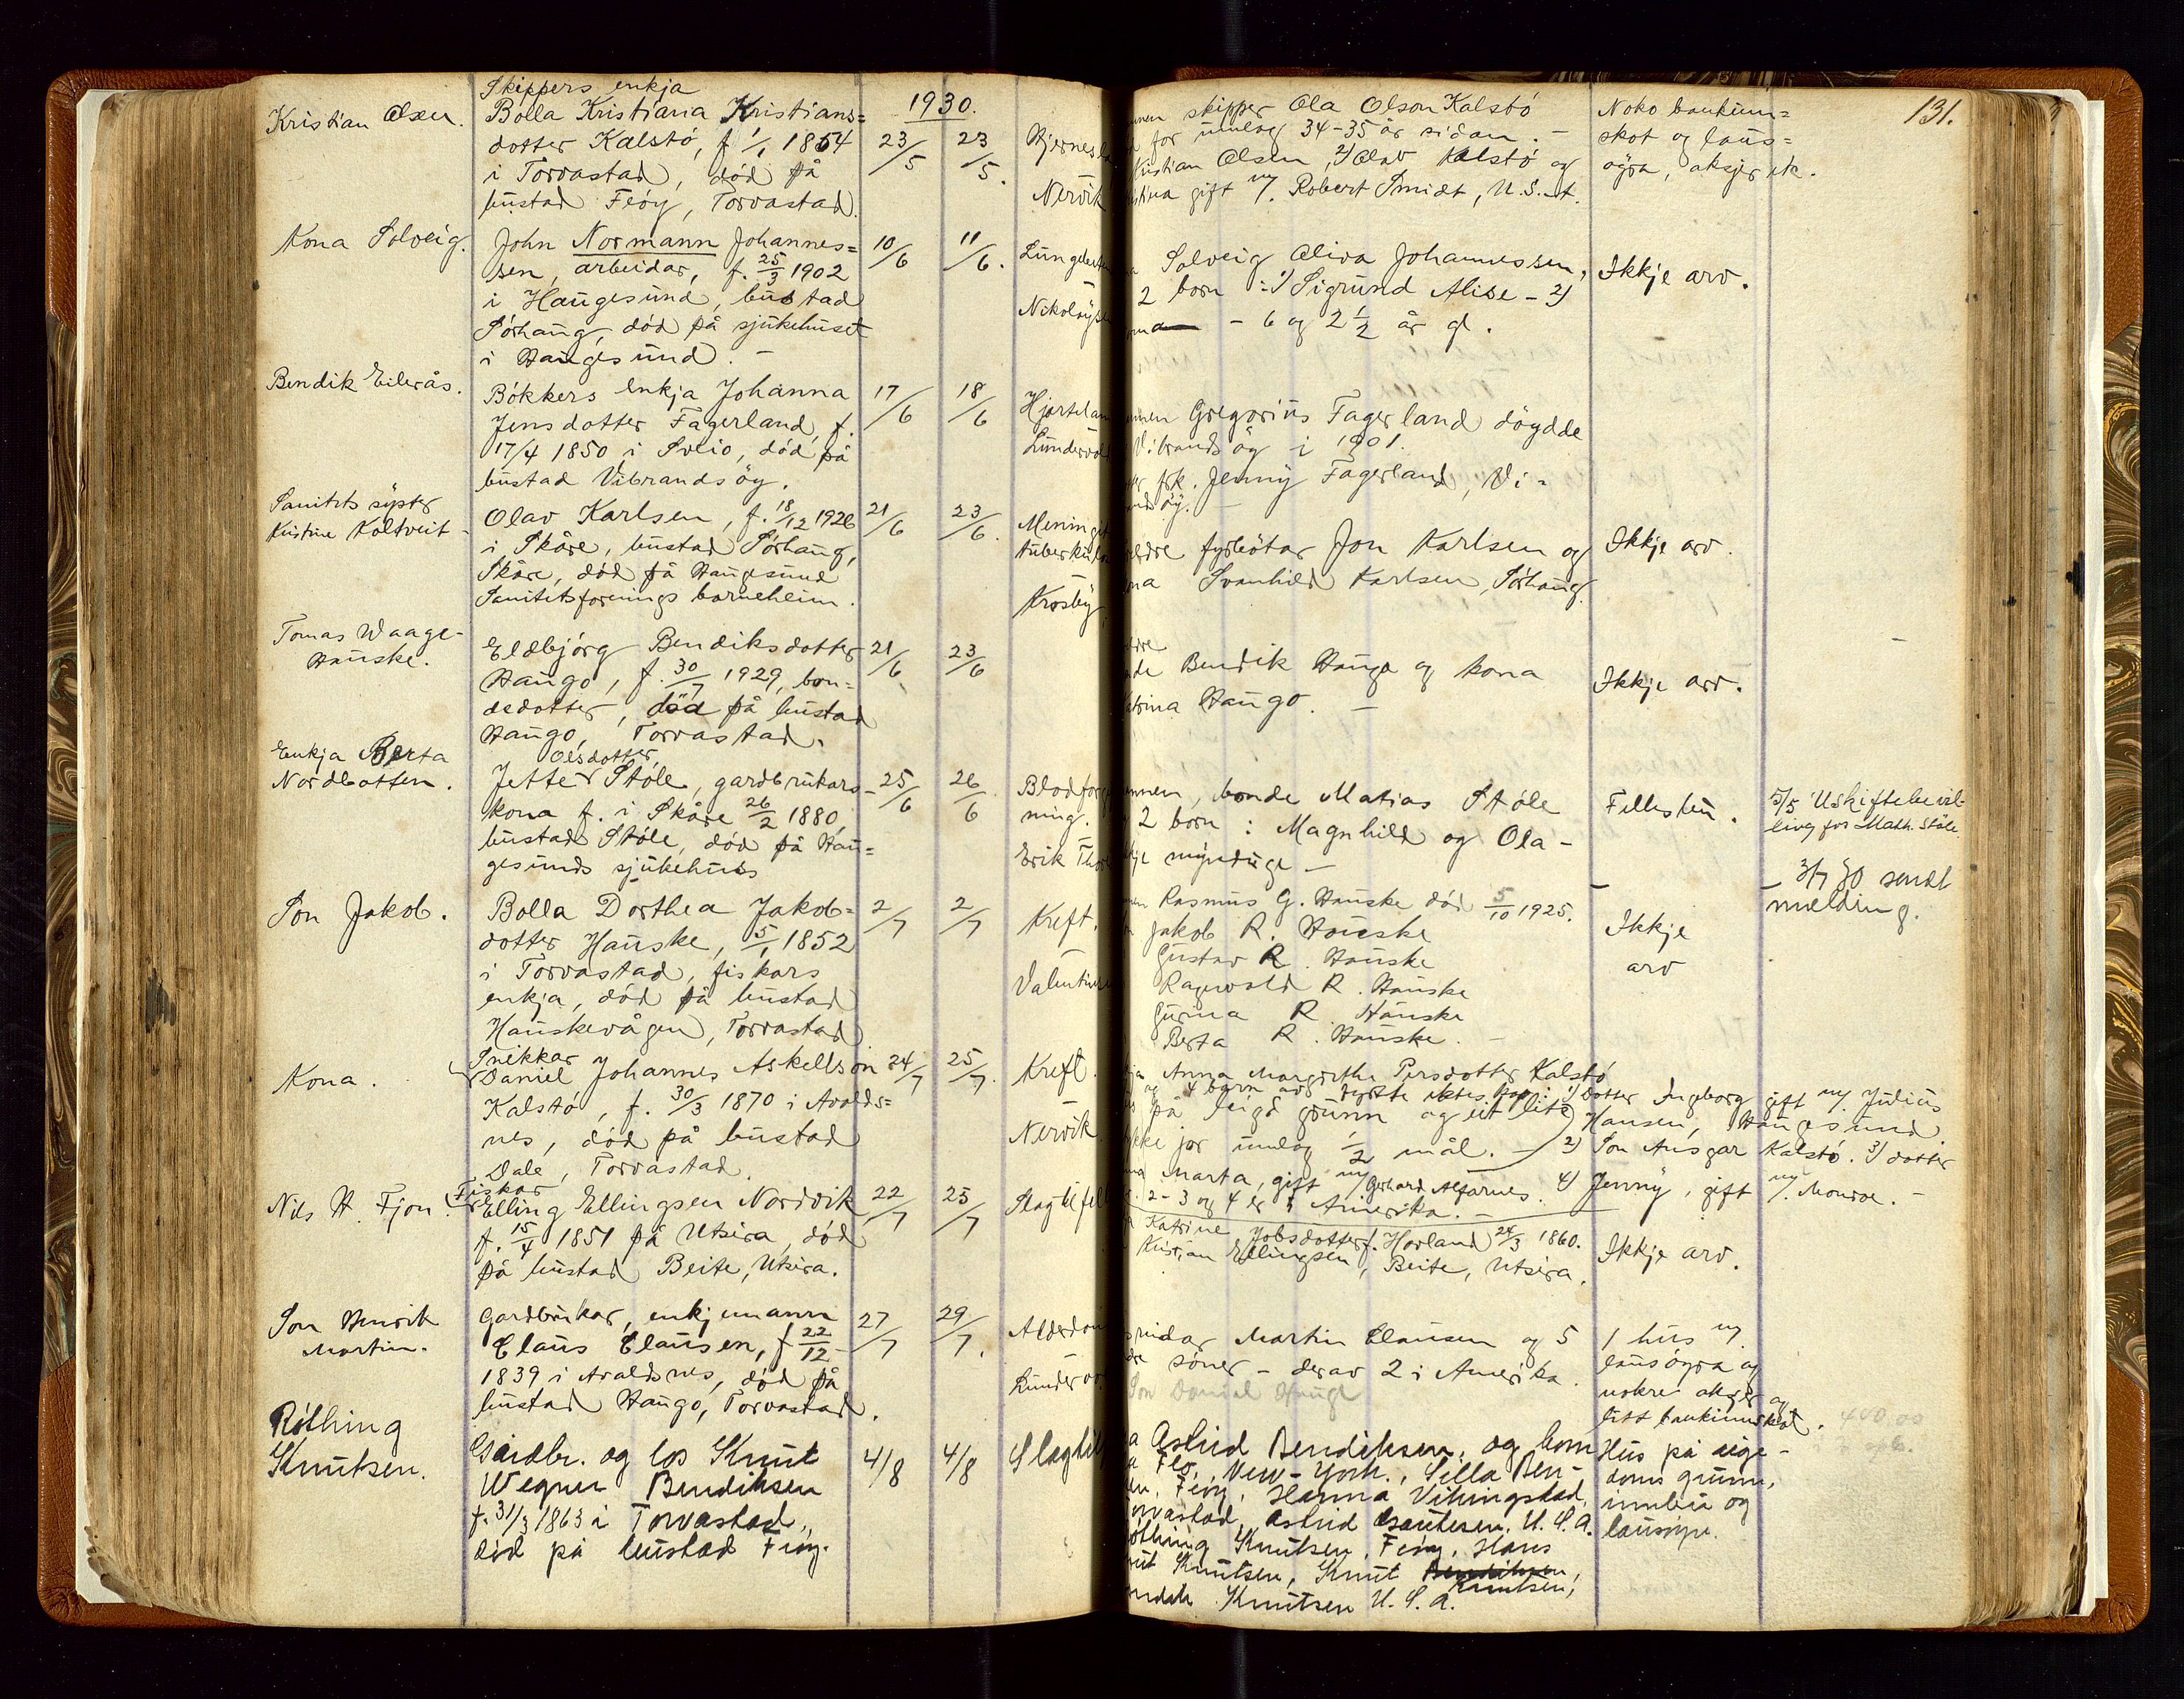 131.
1930.
Kristian Olsen.
Skippers enkja
Bolla Kristiana Kristians=
dotter Kalstö, f 1/1 1854
i Torvastad, död på
bustad Feöy, Torvastad.
23/5
23/5.
Nervik
skipper Ola Olson Kalstö
for umlag 34-35 år sidan. -
Kristian Olsen, 2) Olav Kalstö og
gift m/. Robert Smidt, U.S.A.
Noko bankinn=
skot og laus=
øyra, aksjer etc.
Kona Solveig.
John Normann Johannes=
sen, arbeidar, f. 25/3 1902
i Haugesund, bustad
Sörhaug, död på sjukehuset
i Haugesund. -
10/6
11/6.
Solveig Oliva Johannessen,
2 born : 1) Sigrund Alise - 2)
- 6 og 2 1/2 år gl.
Ikkje arv.
Bendik Eilerås.
Bökkers enkja Johanna
Jensdotter Fagerland, f.
17/4 1850 i Sveio, död på
bustad Vibrandsöy.
17/6
18/6
Gregorius Fagerland döydde
Vibrandsöy i 1901.
frk. Jenny Fagerland, Vi=
Sanitets syster
Kristine Koltveit -
Olav Karlsen, f. 18/12 1926
i Skåre, bustad Sörhaug,
Skåre, död på Haugesund
Sanitetsforenings barneheim.
21/6
23/6.
Krosby
fyrbötar Jon Karlsen og
Svanhild Karlsen, Sörhaug.
Ikkje arv.
Tomas Waage-
Hauske.
Eldbjörg Bendiksdotter
Haugo, f. 30/7 1929, bon=
dedotter, död på bustad
Haugo, Torvastad.
21/6
23/6
Bendik Haugo og kona
Haugo. -
Ikkje arv.
Enkja Berta
Nordbotten.
Olsdotter,
Jette Stöle, gardbrukars-
kona f. i Skåre 26/2 1880,
bustad Stöle, död på Hau=
gesunds sjukehus
25/6
26/6
Blodfor
ning.
Erik
bonde Matias Stöle
2 born : Magnhild og Ola -
mynduge -
Fellesbu.
5/5 Uskiftebevil-
ling for Math. Stöle
- 3/7 30 sendt
melding.
Son Jakob.
Bolla Dorthea Jakob=
dotter Hauske, 5/1 1852
i Torvastad, fiskars
enkja, död på bustad
Hauskevågen, Torvastad
2/7
2/7
Kreft.
Rasmus G. Hauske död 5/10 1925.
Jakob R. Hauske
Gustav R. Hauske
Ragnvald R. Hauske
Gurina R. Hauske
Berta R. Hauske. -
Ikkje
arv
Kona.
Snikkar
Daniel Johannes Askellson
Kalstö, f. 30/3 1870 i Avalds=
nes, död på bustad
Dale, Torvastad.
24/7
25/7.
Kreft.
Nervik
Anna Margrethe Persdotter Kalstö
og 4 barn 1) dotter Ingeborg gift m/ Julius
på leigd grunn og eit lite Hansen, Haugesund.
jor umlag 1/2 mål. - 2) Son Ansgar Kalstö. 3) dotter
Marta, gift m/ Gerhard Alfarnes. 4) Jenny, gift m/. Monroe. -
2-3 og 4 er i Amerika. -
Nils H. Fjon.
Fiskar
Elling Ellingsen Nordvik
f. 15/4 1851 på Utsira, död
på bustad Beite, Utsira.
22/7
25/7
Katrine Jobsdotter f. Horland 24/3 1860.
Ellingsen, Beite, Utsira.
Ikkje arv.
Son Henrik
Martin.
Gardbrukar, enkjemann
Claus Clausen, f 22/12
1839 i Avaldsnes, död på
bustad Haugo, Torvastad.
27/7
29/7.
Martin Clausen og 5
söner - derav 2 i Amerika.
Son Daniel Hauge
1 hus m/.
lausøyra og
nokre aksjer og
litt bankinnskot.
Röthing
Knutsen.
Gardbr. og los Knut
Wegner Bendiksen
f. 31/3 1863 i Torvastad,
död på bustad Feöy.
4/8
4/8
Astrid Bendiksen, og born
New-York., Silla Ben-
Feöy, Hanna Vikingstad,
Astrid U.S.A.
Knutsen, Feöy, Hans
Knutsen, Knut Bendiksen,
Knutsen,
Knutsen U.S.A.
Hus på eige-
doms grunn,
innbu og
lausöyre.